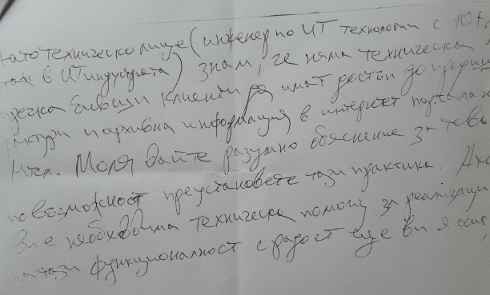 като техническо лице (инженер по ИТ технологии с 10+
стаж в ИТ индустрията) знам, че няма техническа
пречка бивши клиенти да имат достъп до
фактури и архивна информация в интернет портала на
Мтел. Моля дайте разумно обяснение за това
по възможност преустановете тази практика. Ако
Ви е необходима техническа помощ за реализация
на тази функционалност с радост ще ви я